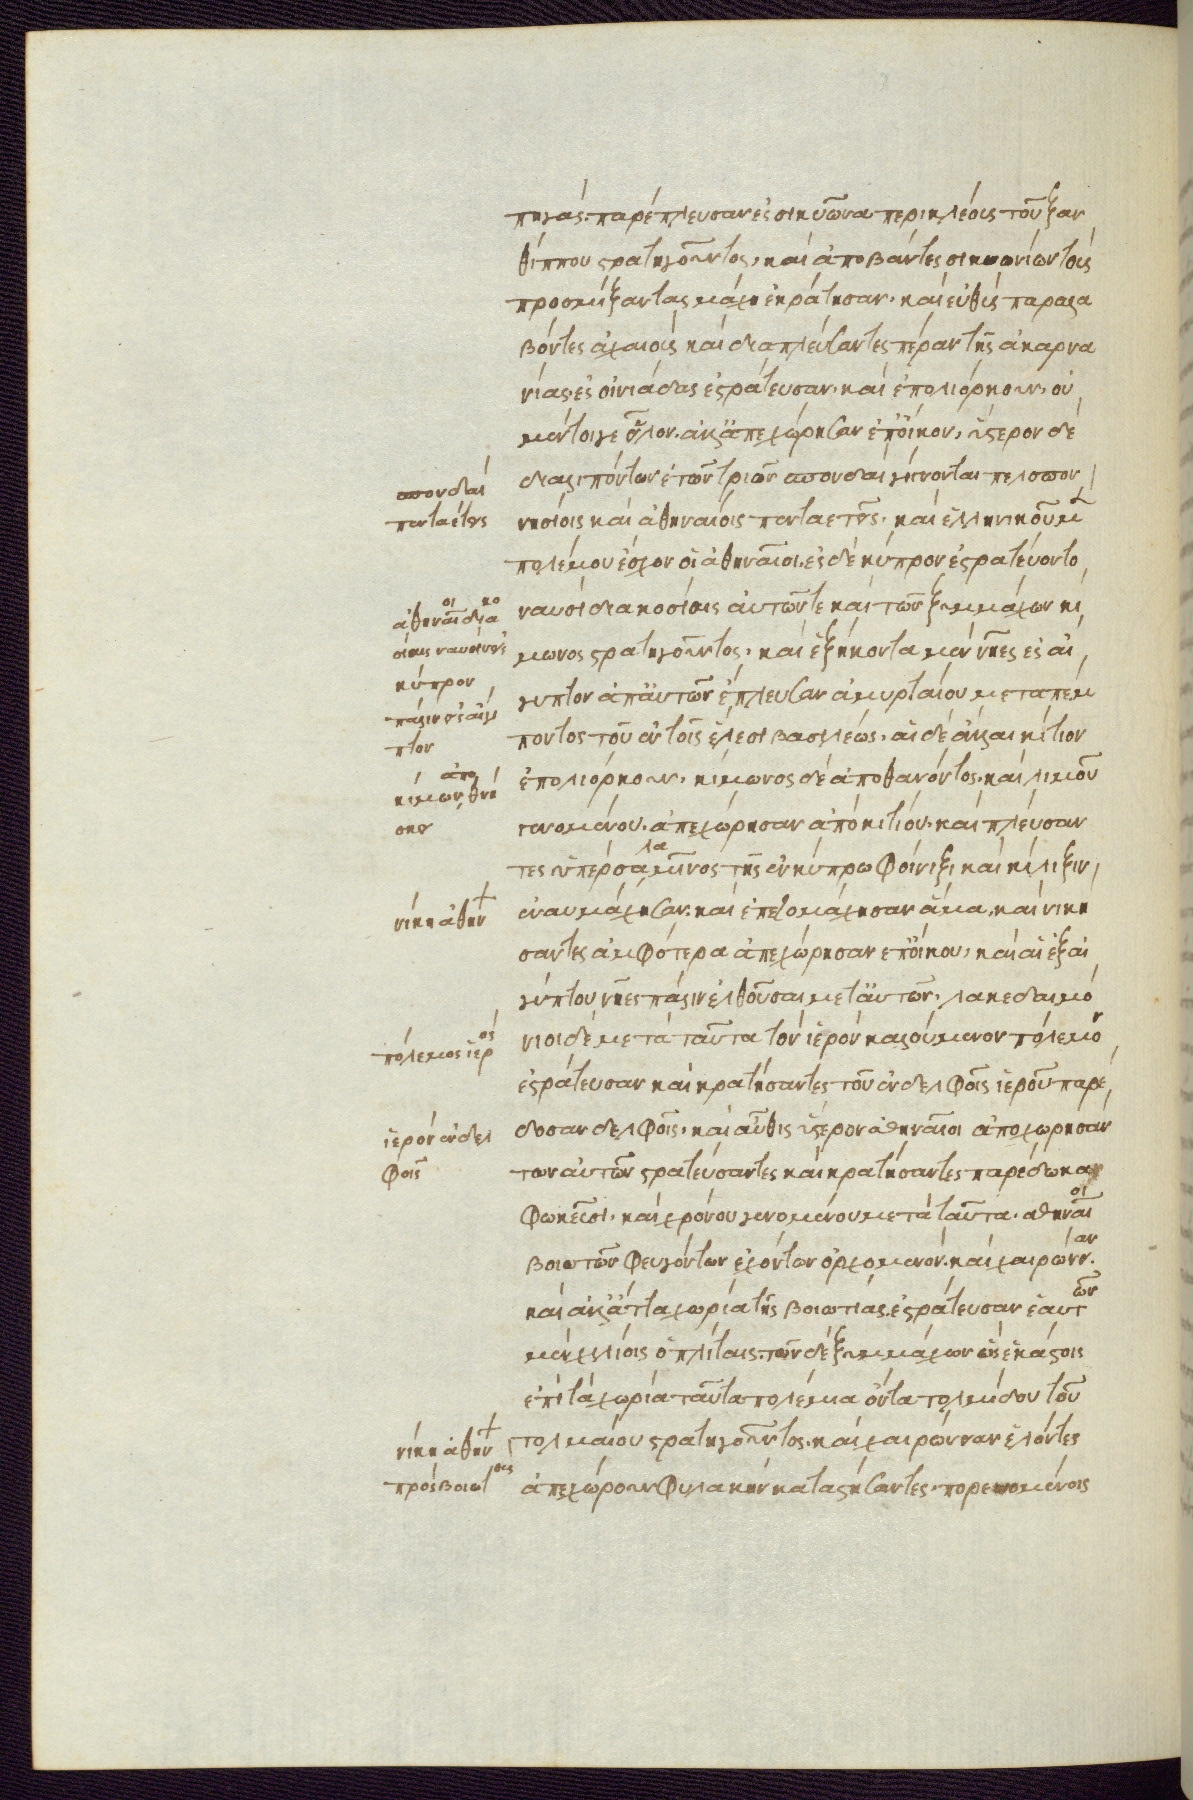 πηγάς. παρέπλευσαν ἐς σικυῶνα περικλέους τοῦ ξαν
θίππου στρατηγοῦντος, καὶ ἀποβάντες σικυωνίων τοὺς
προσμίξαντας μάχη ἐκράτησαν. καὶ εὐθὺς παραλα
βόντες ἀχαιοὺς καὶ διαπλεύσαντες πέραν τῆς ἀκαρνα
νίας, ἐς οἰνιάδας ἐστράτευσαν. καὶ ἐπολιόρκουν, οὐ
μέντοιγε εἷλον. ἀλλ' ἀπεχώρησαν ἐπ' οἴκου, ὕστερον δὲ
σπονδαὶ
πενταέτεις
διαλιπόντων ἐτῶν τριῶν σπονδαὶ γίνονται πελοπον
νησίοις καὶ ἀθηναίοις πενταετεῖς. καὶ ἑλληνικοῦ μὲν
πολέμου ἔσχον οἱ ἀθηναῖοι. ἐς δὲ κύπρον ἐστρατεύοντο
ἀθηναῖοι διακο
σίαις ναυσὶν ἐς
κύπρον
πάλιν ἐς αἴγυ
πτον
ναυσὶ διακοσίαις αὐτῶν τε καὶ τῶν ξυμμάχων κί
μωνος στρατηγοῦντος, καὶ ἑξήκοντα μὲν νῆες ἐς αἴ
γυπτον ἀπ' αὐτῶν ἔπλευσαν ἀμυρταίου μεταπέμ
ποντος τοῦ ἐν τοῖς ἕλεσι βασιλέως. αἱ δὲ ἄλλαι κίτιον
κίμων ἀποθνή
σκει
ἐπολιόρκουν. κίμωνος δὲ ἀποθανόντος. καὶ λιμοῦ
γενομένου. ἀπεχώρησαν ἀπὸ κιτίου. καὶ πλεύσαν
τες ὑπὲρ σαλαμῖνος τῆς ἐν κύπρω φοίνιξι καὶ κίλιξιν
νίκη ἀθην
ἐναυμάχησαν. καὶ ἐπεζομάχησαν ἅμα. καὶ νικη
σαντες ἀμφότερα ἀπεχώρησαν ἐπ' οἴκου, καὶ αἱ ἐξ αἰ
γύπτου νῆες πάλιν ἐλθοῦσαι μετ' αὐτῶν. λακεδαιμό
πόλεμος ἱερός
νιοι δὲ μετὰ ταῦτα τὸν ἱερὸν καλούμενον πόλεμον
ἐστράτευσαν καὶ κρατήσαντες τοῦ ἐν δελφοῖς ἱεροῦ παρέ
ἱερὸν ἐν δελ
φοῖς
δοσαν δελφοῖς. καὶ αὖθις ὕστερον ἀθηναῖοι ἀποχωρησάν
των αὐτῶν στρατεύσαντες καὶ κρατήσαντες παρέδωκαν
φωκεῦσι. καὶ χρόνου γενομένου μετὰ ταῦτα. ἀθηναῖοι
βοιωτῶν φευγόντων ἐχόντων ὀρχομενόν. καὶ χαιρώνειαν.
καὶ ἀλλ' ἄττα χωρία τῆς βοιωτίας. ἐστράτευσαν ἑαυτῶν
μὲν χιλίοις ὁπλίταις. τῶν δὲ ξυμμάχων ὡς ἑκάστοις
ἐπὶ τὰ χωρία ταῦτα πολέμια ὄντα τολμίδου τοῦ
νίκη ἀθην
πρὸς βοιωτοὺς
τολμαίου στρατηγοῦντος. καὶ χαιρώνειαν ἑλόντες
ἀπεχώρουν φυλακὴν καταστήσαντες. πορευομένοις